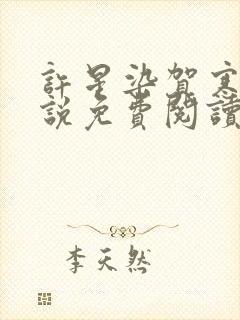 許星染賀寒
說免費閱讀
李天然